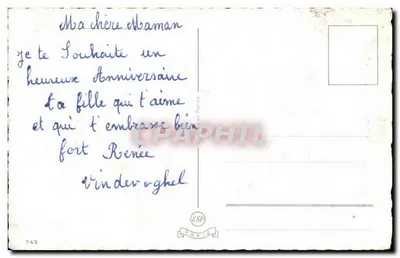 Ma chère Maman
je te Souhaite un
heureux Anniversaire
ta fille qui t'aime
et qui t'embrasse bien
fort Renée
Vindevoghel
CPARPHIL
ESP
PARIS